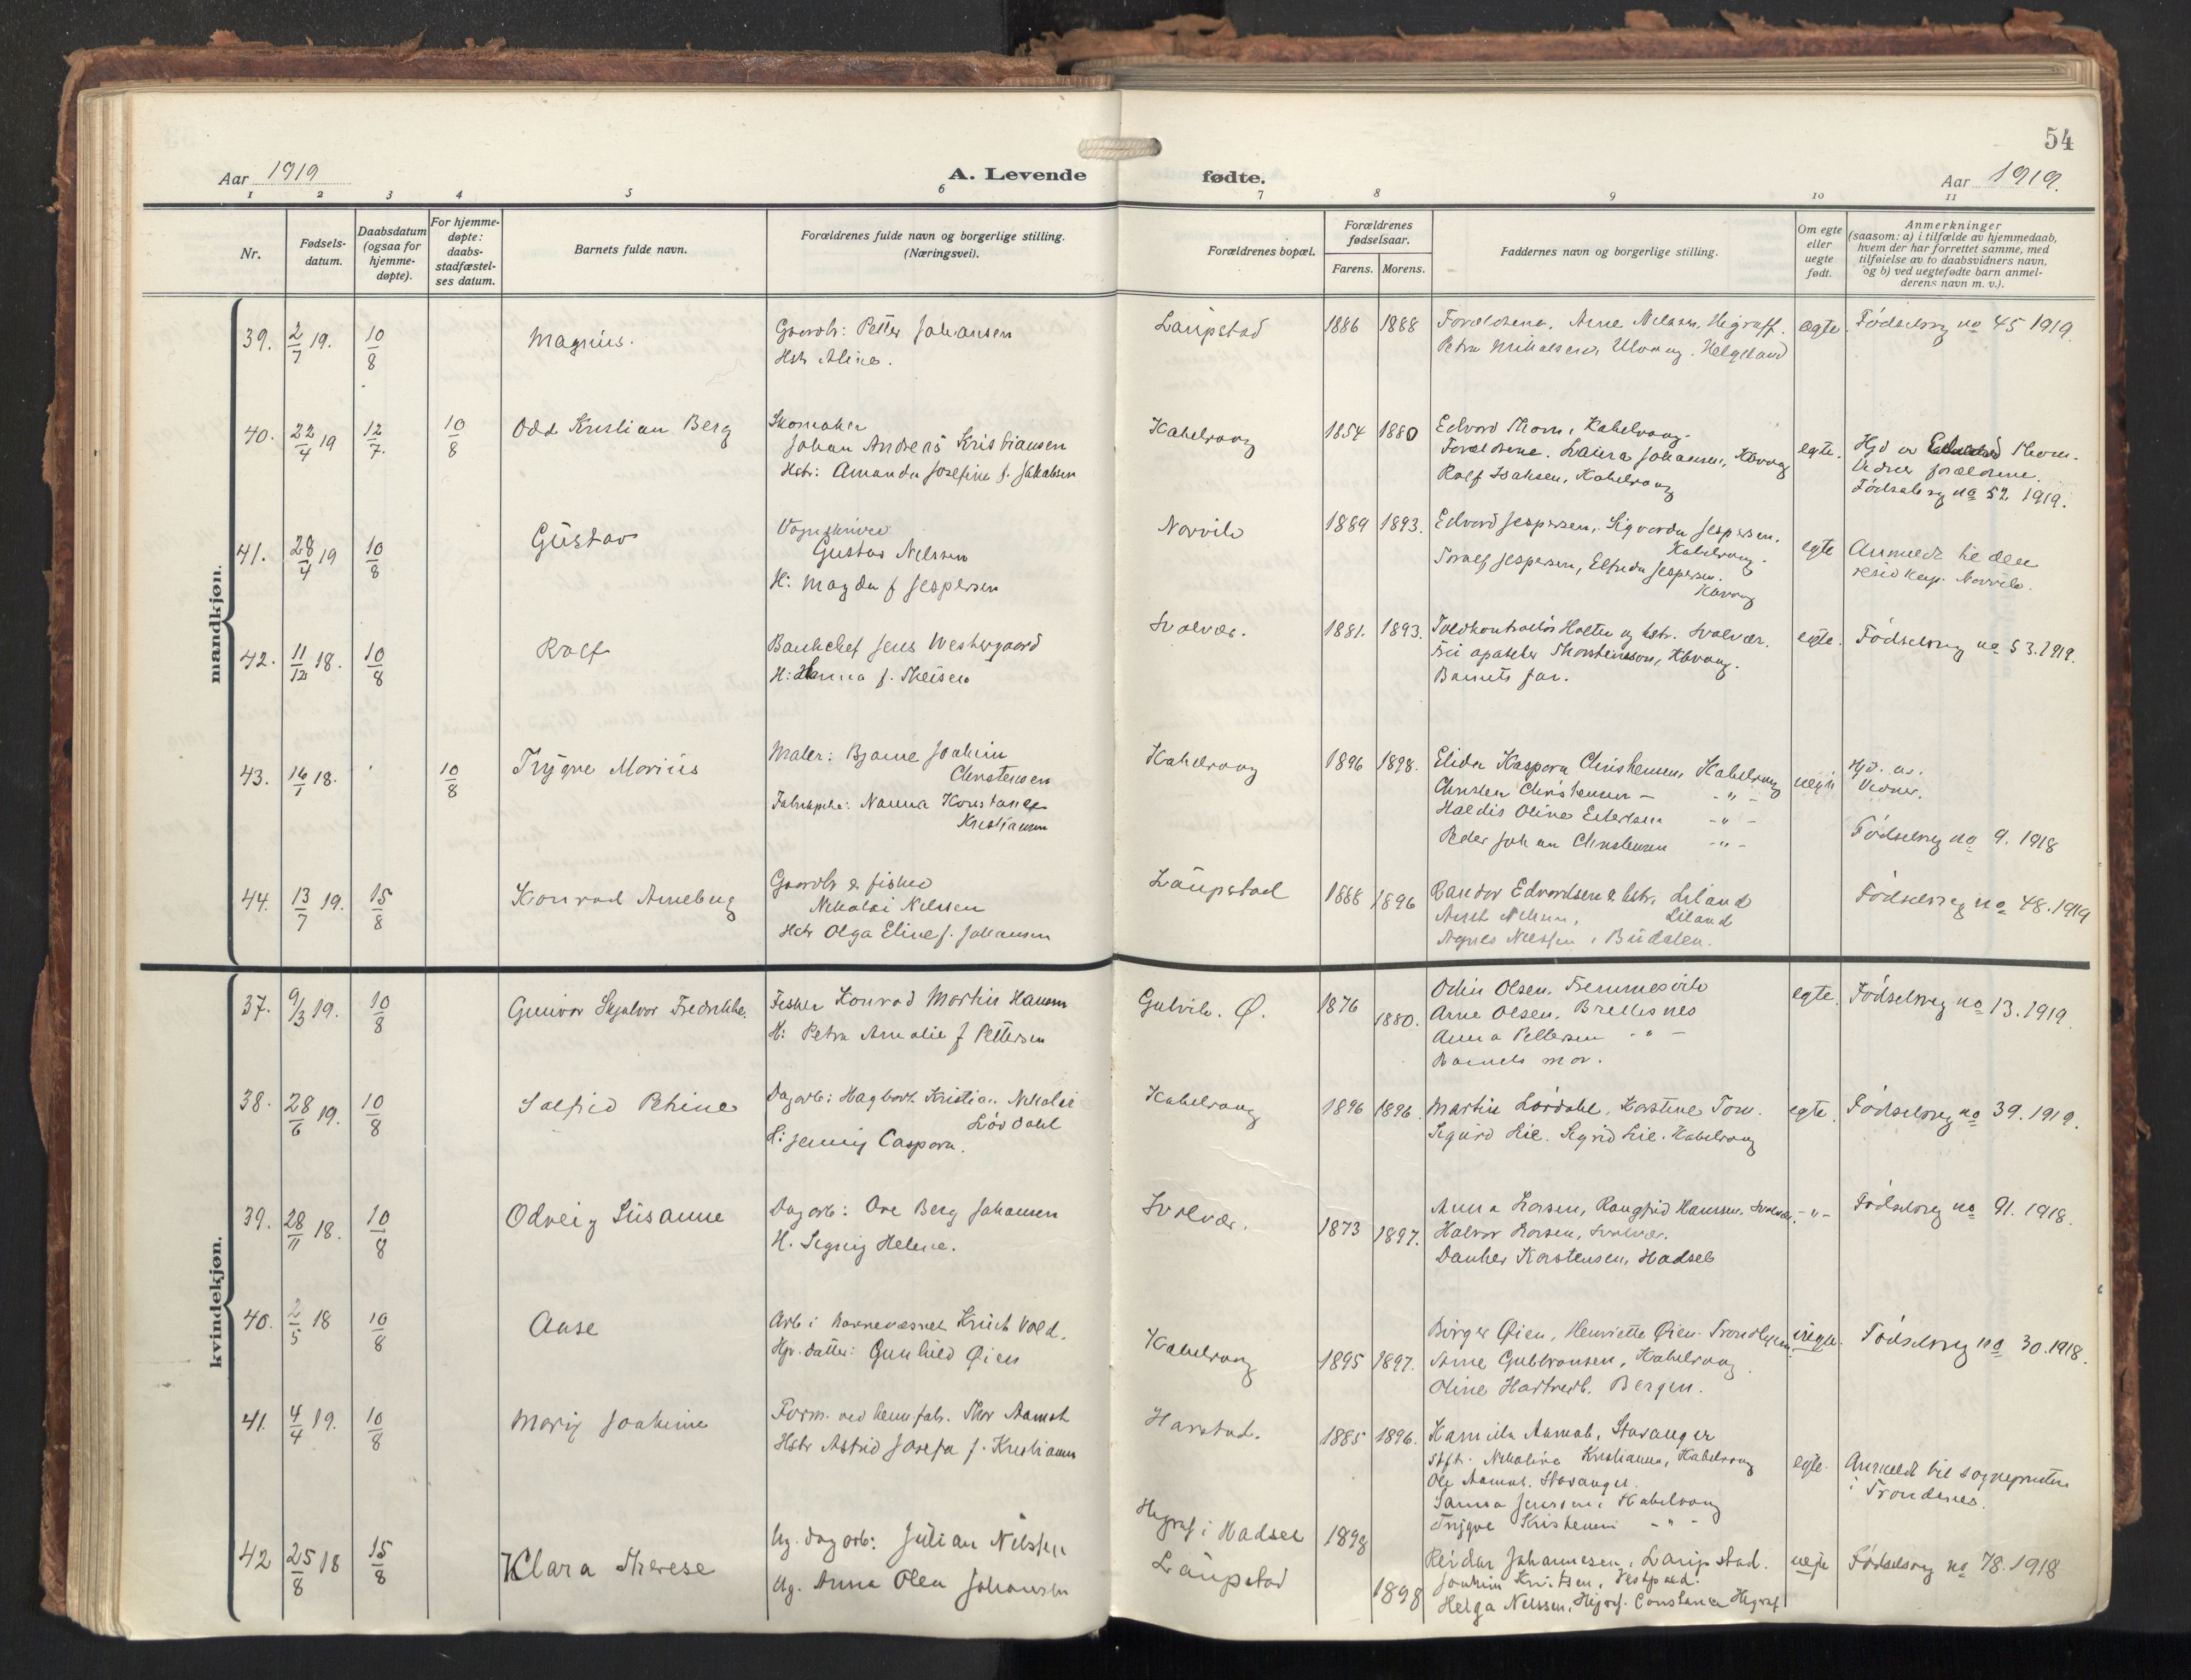 54
Aar 1919
A. Levende
fødte.
Aar 1919.
1 2 3 4 5 6 7 8 9 10 11
Nr.
Fødsels-
datum.
Daabsdatum
(ogsaa for
hjemme-
døpte).
For hjemme-
døpte:
daabs-
stadfæstel-
ses datum.
Barnets fulde navn.
Forældrenes fulde navn og borgerlige stilling.
(Næringsvei).
Forældrenes bopæl.
Forældrenes
fødselsaar.
Farens. Morens.
Faddernes navn og borgerlige stilling.
Om egte
eller
uegte
født.
Anmerkninger
(saasom: a) i tilfælde av hjemmedaab,
hvem der har forrettet samme, med
tilføielse av to daabsvidners navn,
og b) ved uegtefødte barn anmel-
derens navn m. v.).
mandkjøn.
39. 2/7 19. 10/8 Magnus.
Gaardb: Petter Johansen
Hstr Aline.
Laupstad 1886 1888
Forældrene. Arne Nilssen, Higraff.
Petra Mikalsen, Helgeland
egte. Fødselsreg no 45 1919.
40. 22/4 19 12/7. 10/8 Odd Kristian Berg
Skomaker
Johan Andreas Kristiansen
Hstr: Amanda Josefine f. Jakobsen
Kabelvaag 1854 1880
Edvard Thom, Kabelvaag.
Forældrene. Laura Johansen, Kbvaag
Rolf Isaksen, Kabelvaag
egte. Hjd av Edvard Thom.
Vidner forældrene.
Fødselsreg no 52 1919.
41. 28/4 19 10/8 Gustav
Vognskriver
Gustav Nilssen
H: Magda f Jespersen
Narvik 1889 1893.
Edvard Jespersen, Sigvarda Jespersen,
Kabelvaag.
Toralf Jespersen, Elfrida Jespersen.
Kbvaag
egte Anmeldt til den
resid kap. Narvik.
42. 11/12 18. 10/8 Rolf
Bankchef Jens Westergaard
H: Hanna f. Theisen
Svolvær. 1881. 1893.
Toldkontrollør Holter og hstr. Svolvær.
Fru apoteker Thorsteinsson, Kbvaag.
Barnets far.
egte. Fødselsreg no 53.1919.
43. 16/1 18. 10/8 Trygve Marius
Maler: Bjarne Joakim
Christensen
Fabrikpike: Nanna Konstanse
Kristiansen
Kabelvaag 1896 1898.
Elida Kaspara Christensen, Kabelvaag
Christen Christensen - - " -
Haldis Oline - " -
Peder Johan Christensen - " -
uegte Hjd. av.
Vidner.
Fødselsreg no 9. 1918
44. 13/7 19. 15/8 Konrad Arneberg
Gaardb & fisker
Nikolai Nilssen
Hstr Olga Eline f. Johansen
Laupstad 1888 1896
Edvardsen & hstr, Liland
Nilssen, Liland
Agnes Nilssen, Budalen.
Fødselsreg no 48.1919
kvindekjøn.
37. 9/3 19. 10/8 Gunvor Skjalvor Fredrikke.
Fisker Konrad Martin Hansen
H: Petra Amalie f Pettersen
Gulvik. Ø. 1876 1880.
Odin Olsen.
Arne Olsen, Brettesnes
Anna Pettersen - " -
Barnets mor.
egte. Fødselsreg no 13.1919.
38. 28/6 19. 10/8 Solfrid Petrine
Dagarb: Hagbart Kristian Nikolai
Løvdahl
H: Jenny Caspara.
Kabelvaag 1896 1896.
Martin Løvdahl, Karstine Tom.
Sigurd Lie. Sigrid Lie. Kabelvaag
egte. Fødselsreg no 39.1919.
39. 28/11 18. 10/8 Odveig Susanne
Dagarb: Ove Berg Johansen
H. Signy Helene.
Svolvær. 1873 1897.
Anna Larsen, Rangfrid Hanssen. Svolvær.
Halvor Larsen, Svolvær.
Danker Karstensen, Hadsel
- " - Fødselsreg no 91. 1918.
40. 2/5 18 10/8 Aase
Arb i havnevæsnet Knut Vold.
Hjv. datter: Gunhild Øien
Kabelvaag 1895 1897.
Birger Øien, Henriette Øien Trondhjem
Arne Gulbransen, Kabelvaag
Oline Bergen.
uegte. Fødselsreg no 30.1918.
41. 4/4 19. 10/8 Mary Joakime
Form. ved hermfab. Thor Aamot
Hstr Astrid Josefa f. Kristiansen
Harstad. 1885 1896.
Kamilla Aamot, Stavanger
Nikoline Kristiansen, Kabelvaag
Ole Aamot. Stavanger.
Sanna Jenssen, Kabelvaag
Trygve Kristensen - " -
egte. Anmeldt til sognepresten
i Trondenes.
42 25/8 18 15/8 Klara Therese
Ug. dagarb: Julian Nilssen
Ug. Anna Olea Johansen
Higraf i Hadsel 1898
Laupstad 1898
Reidar Johannesen, Laupstad.
Joakim Knutsen, Vestpold.
Helga Nilssen, Higraf. Constanse Higraf
uegte Fødselsreg no 78.1918